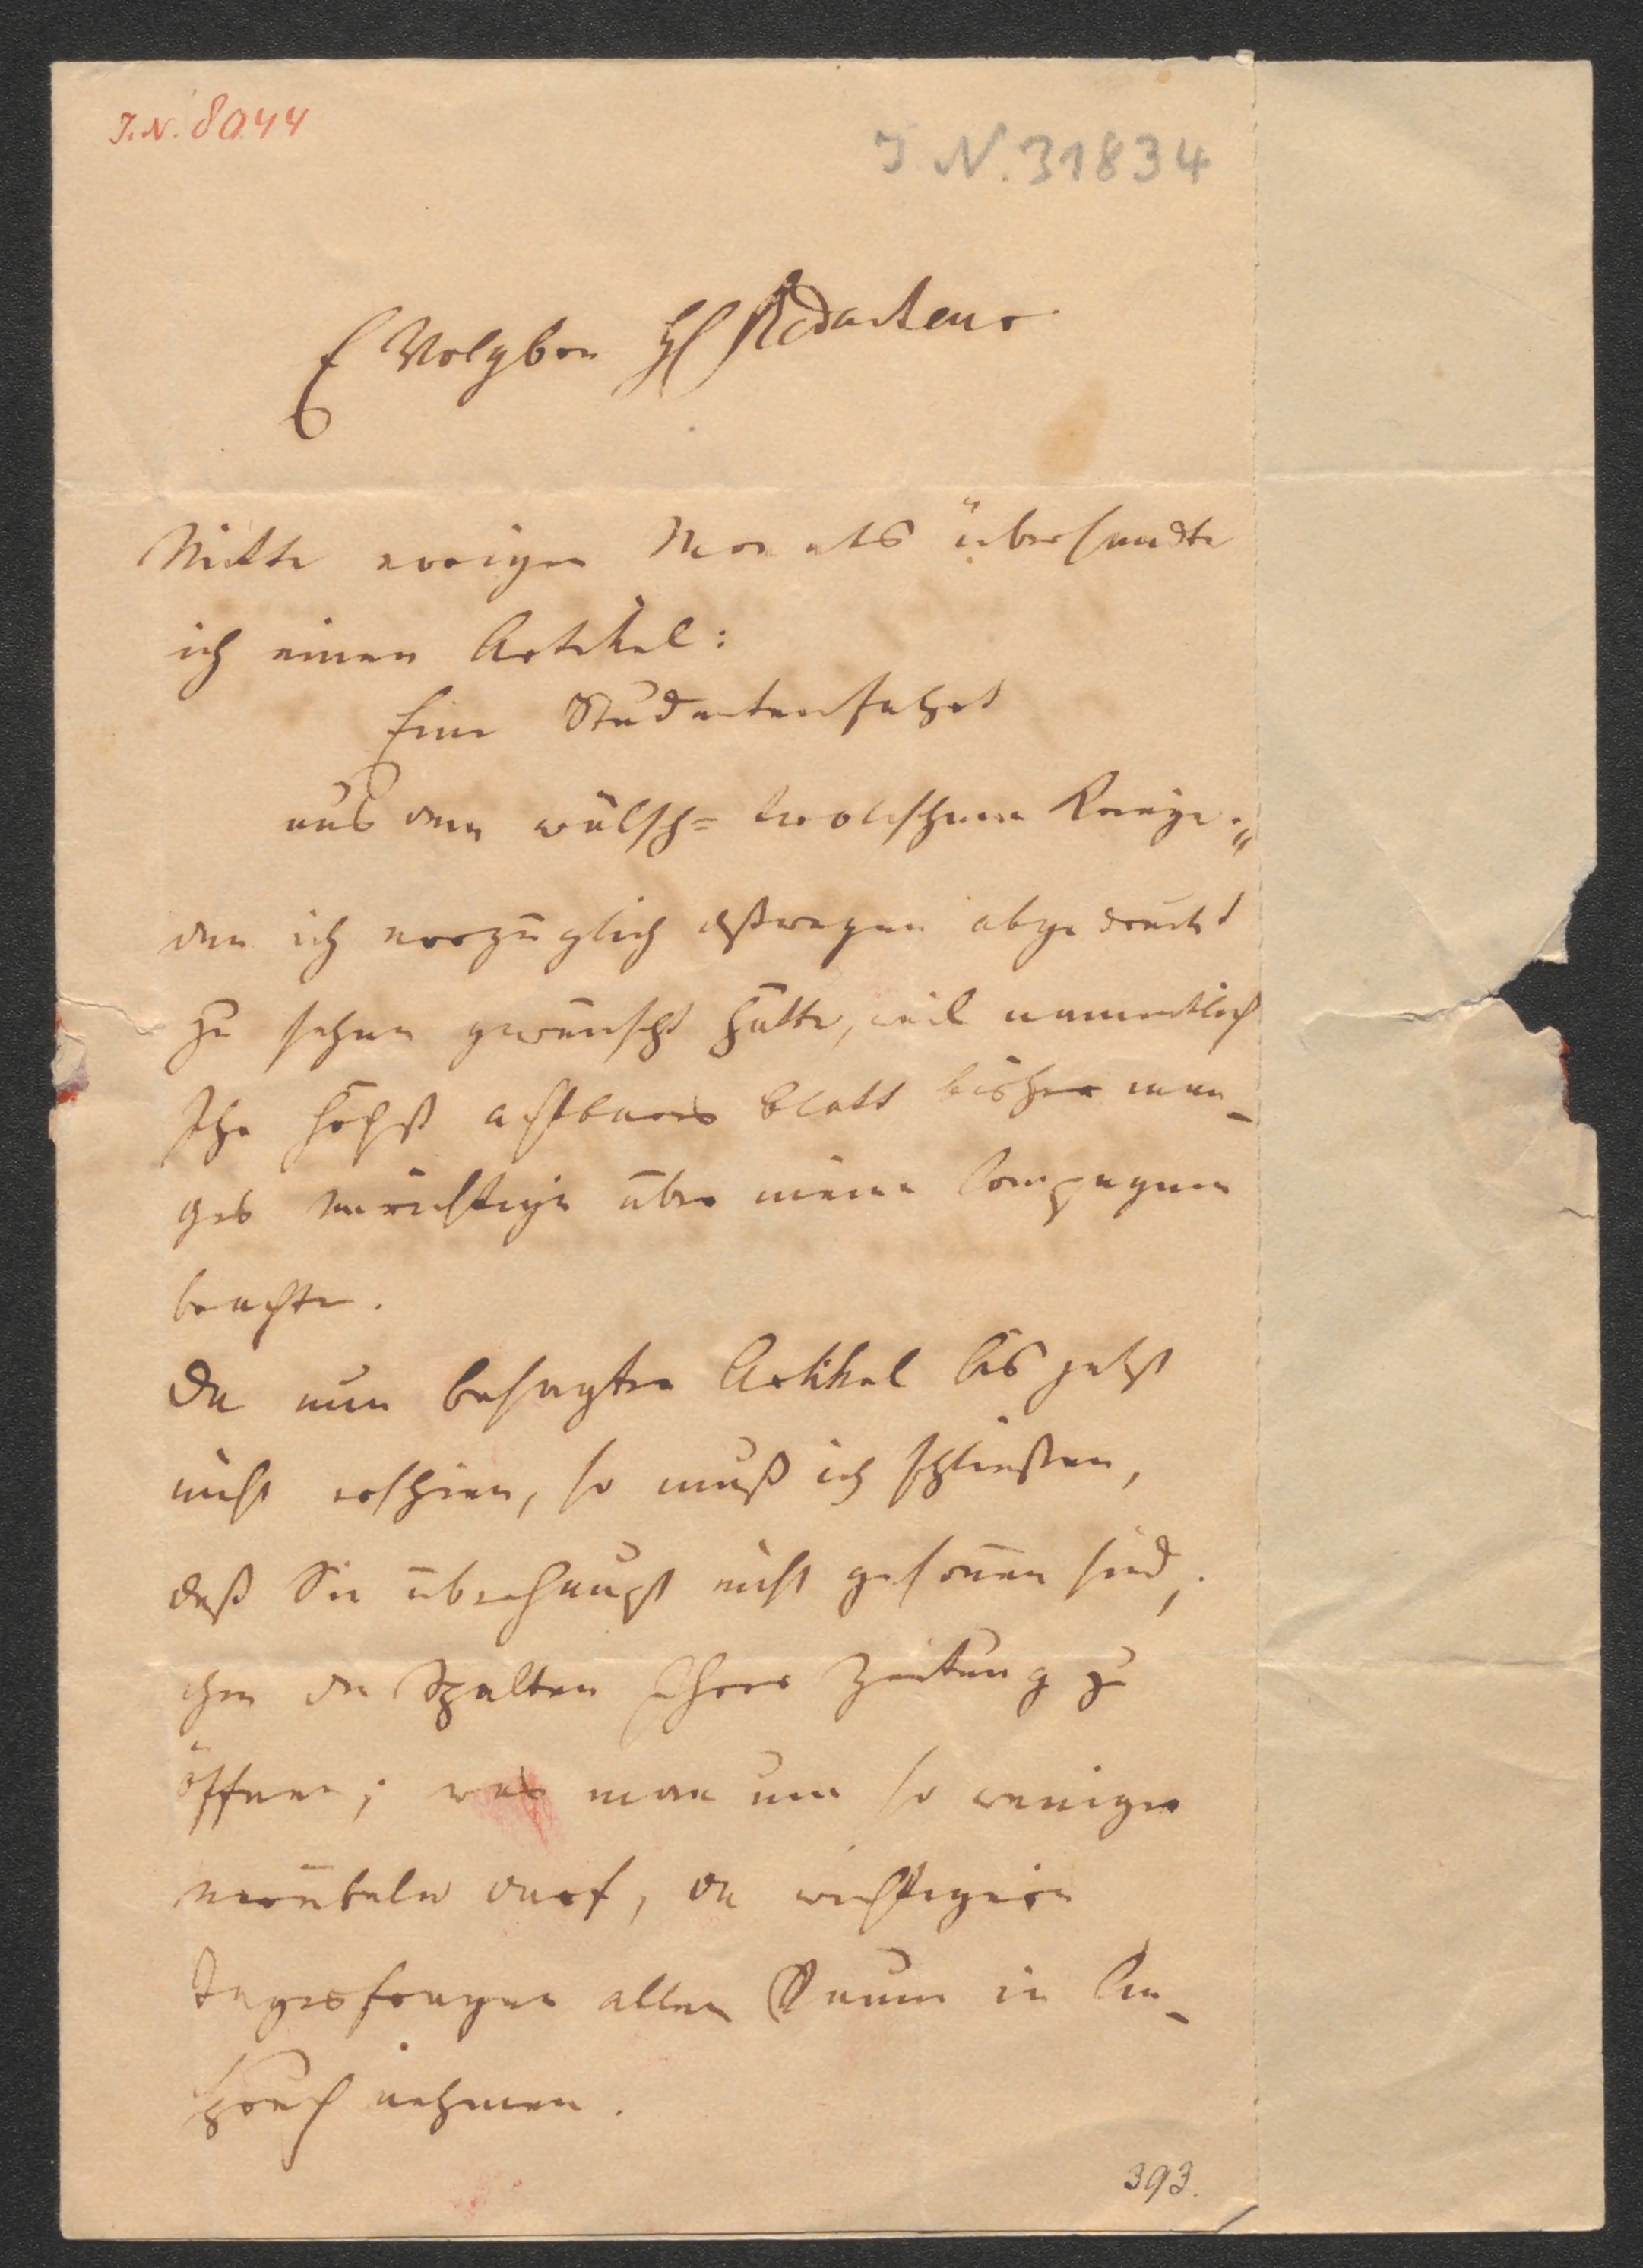 I.N. 8044
I.N. 31834
E Wolgborn H Redacteur
Mitte vorigen Monats übersandte
ich einen Artikel:
Eine Studentenfahrt
aus dem wälsch=tirolischen Kriege."
den ich vorzüglich deßwegen abgedruckt
zu sehen gewünscht hätte, weil namentlich
Ihr höchst achtbares Blatt bisher man-
ges unrichtige über meine Compagnie
brachte.
Da nun besagter Artikel bis jetzt
nicht erschien, so muß ich schließen,
daß Sie überhaupt nicht gesonnen sind,
ihm die Spalten Ihrer Zeitung zu
öffnen; was man um so weniger
verübeln darf, da wichtigere
Tagesfragen allen Raum in An-
spruch nehmen.
393.